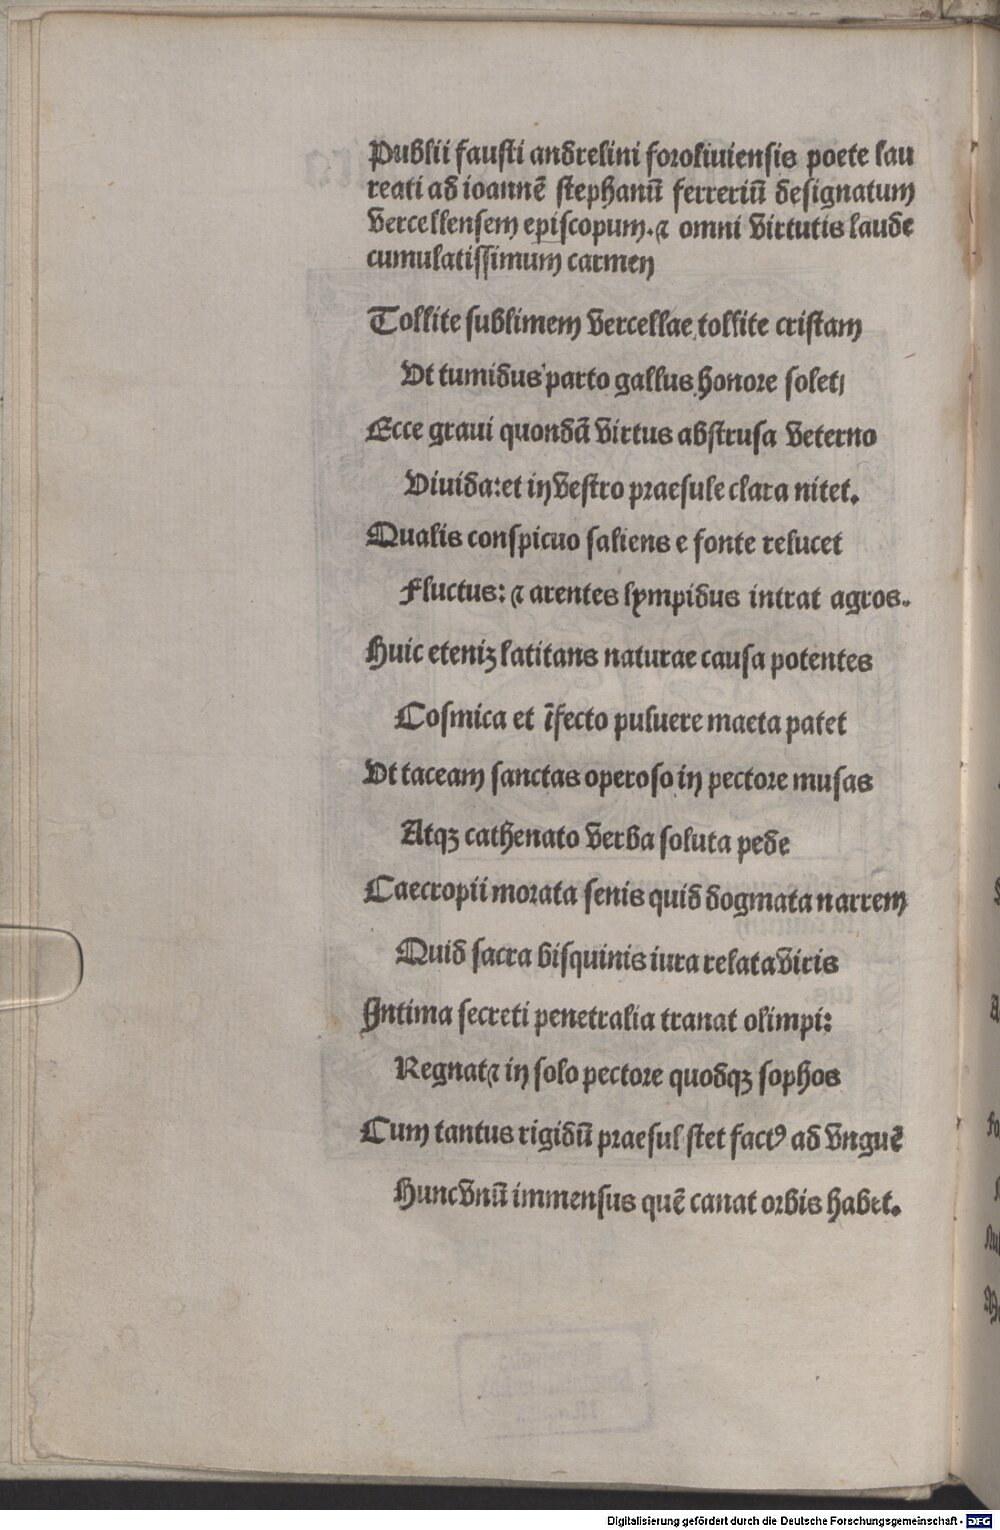 Publii fausti andrelini foroliuiensis poete lau
reati ad ioannē stephanū ferreriū designatum
vercellensem episcopum. ⁊ omni virtutis laude
cumulatissimum carmen
Tollite sublimem vercellae tollite cristam
Vt tumidus parto gallus honore solet;
Ecce graui quondā virtus abstrusa veterno
Viuida: et in vestro praesule clara nitet.
Qualis conspicuo saliens e fonte relucet
Fluctus: ⁊ arentes lympidus intrat agros.
Huic eteniꝫ latitans naturae causa potentes
Cosmica et īfecto puluere maeta patet
Vt taceam sanctas operoso in pectore musas
Atqꝫ cathenato verba soluta pede
Caecropii morata senis quid dogmata narrem
Quid sacra bisquinis iura relata viris
Intima secreti penetralia tranat olimpi:
Regnat ⁊ in solo pectore quodqꝫ sophos
Cum tantus rigidū praesul stet factꝰ ad vnguē
Hunc vnū immensus quē canat orbis habet.
Digitalisierung gefördert durch die Deutsche Forschungsgemeinschaft - DFG